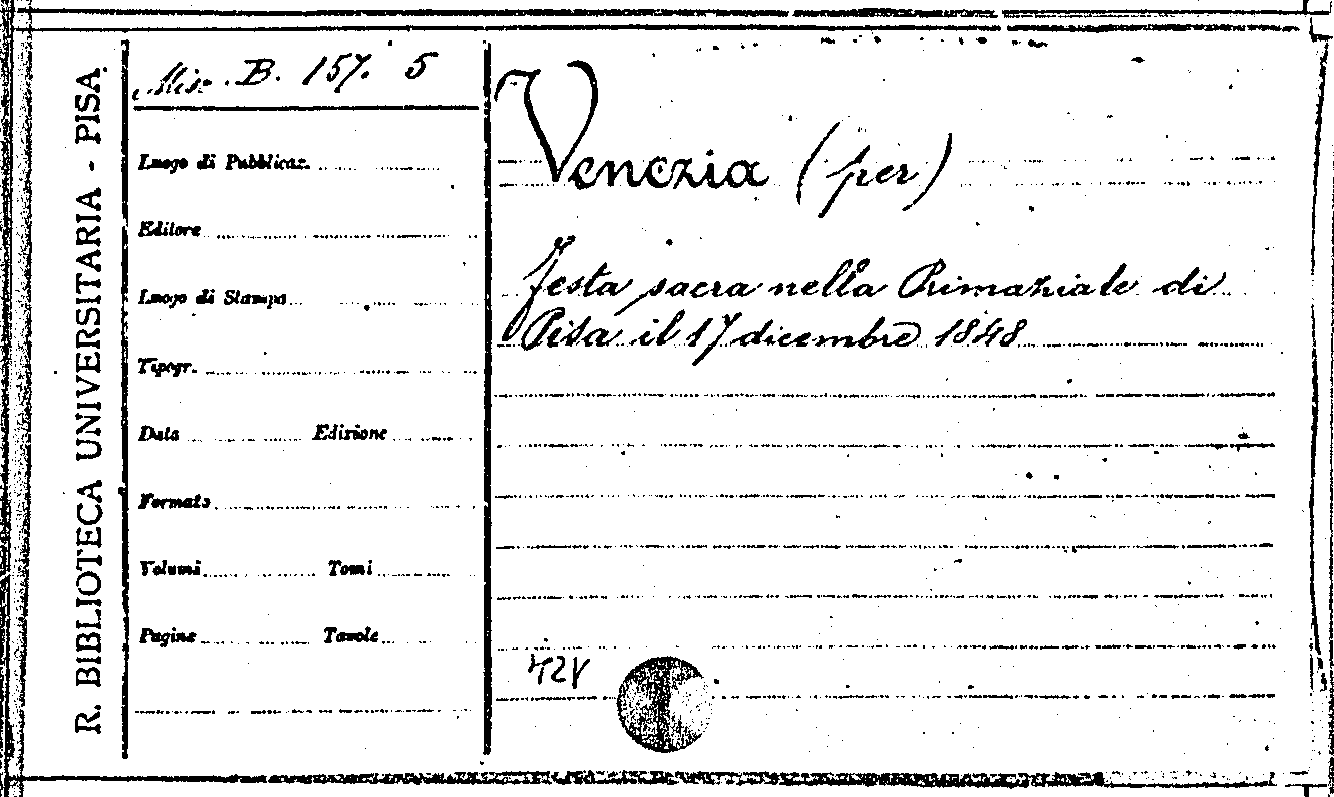 R. BIBLIOTECA UNIVERSITARIA - PISA
Misc. B. 157. 5
Luogo di Pubblicaz.
Editore
Luogo di Stampa
Tipogr.
Data Edizione
Formato
Volumi Tomi
Pagine Tavole
Venezia (per)
Festa sacra nella Primaziale di
Pisa il 17 dicembre 1848